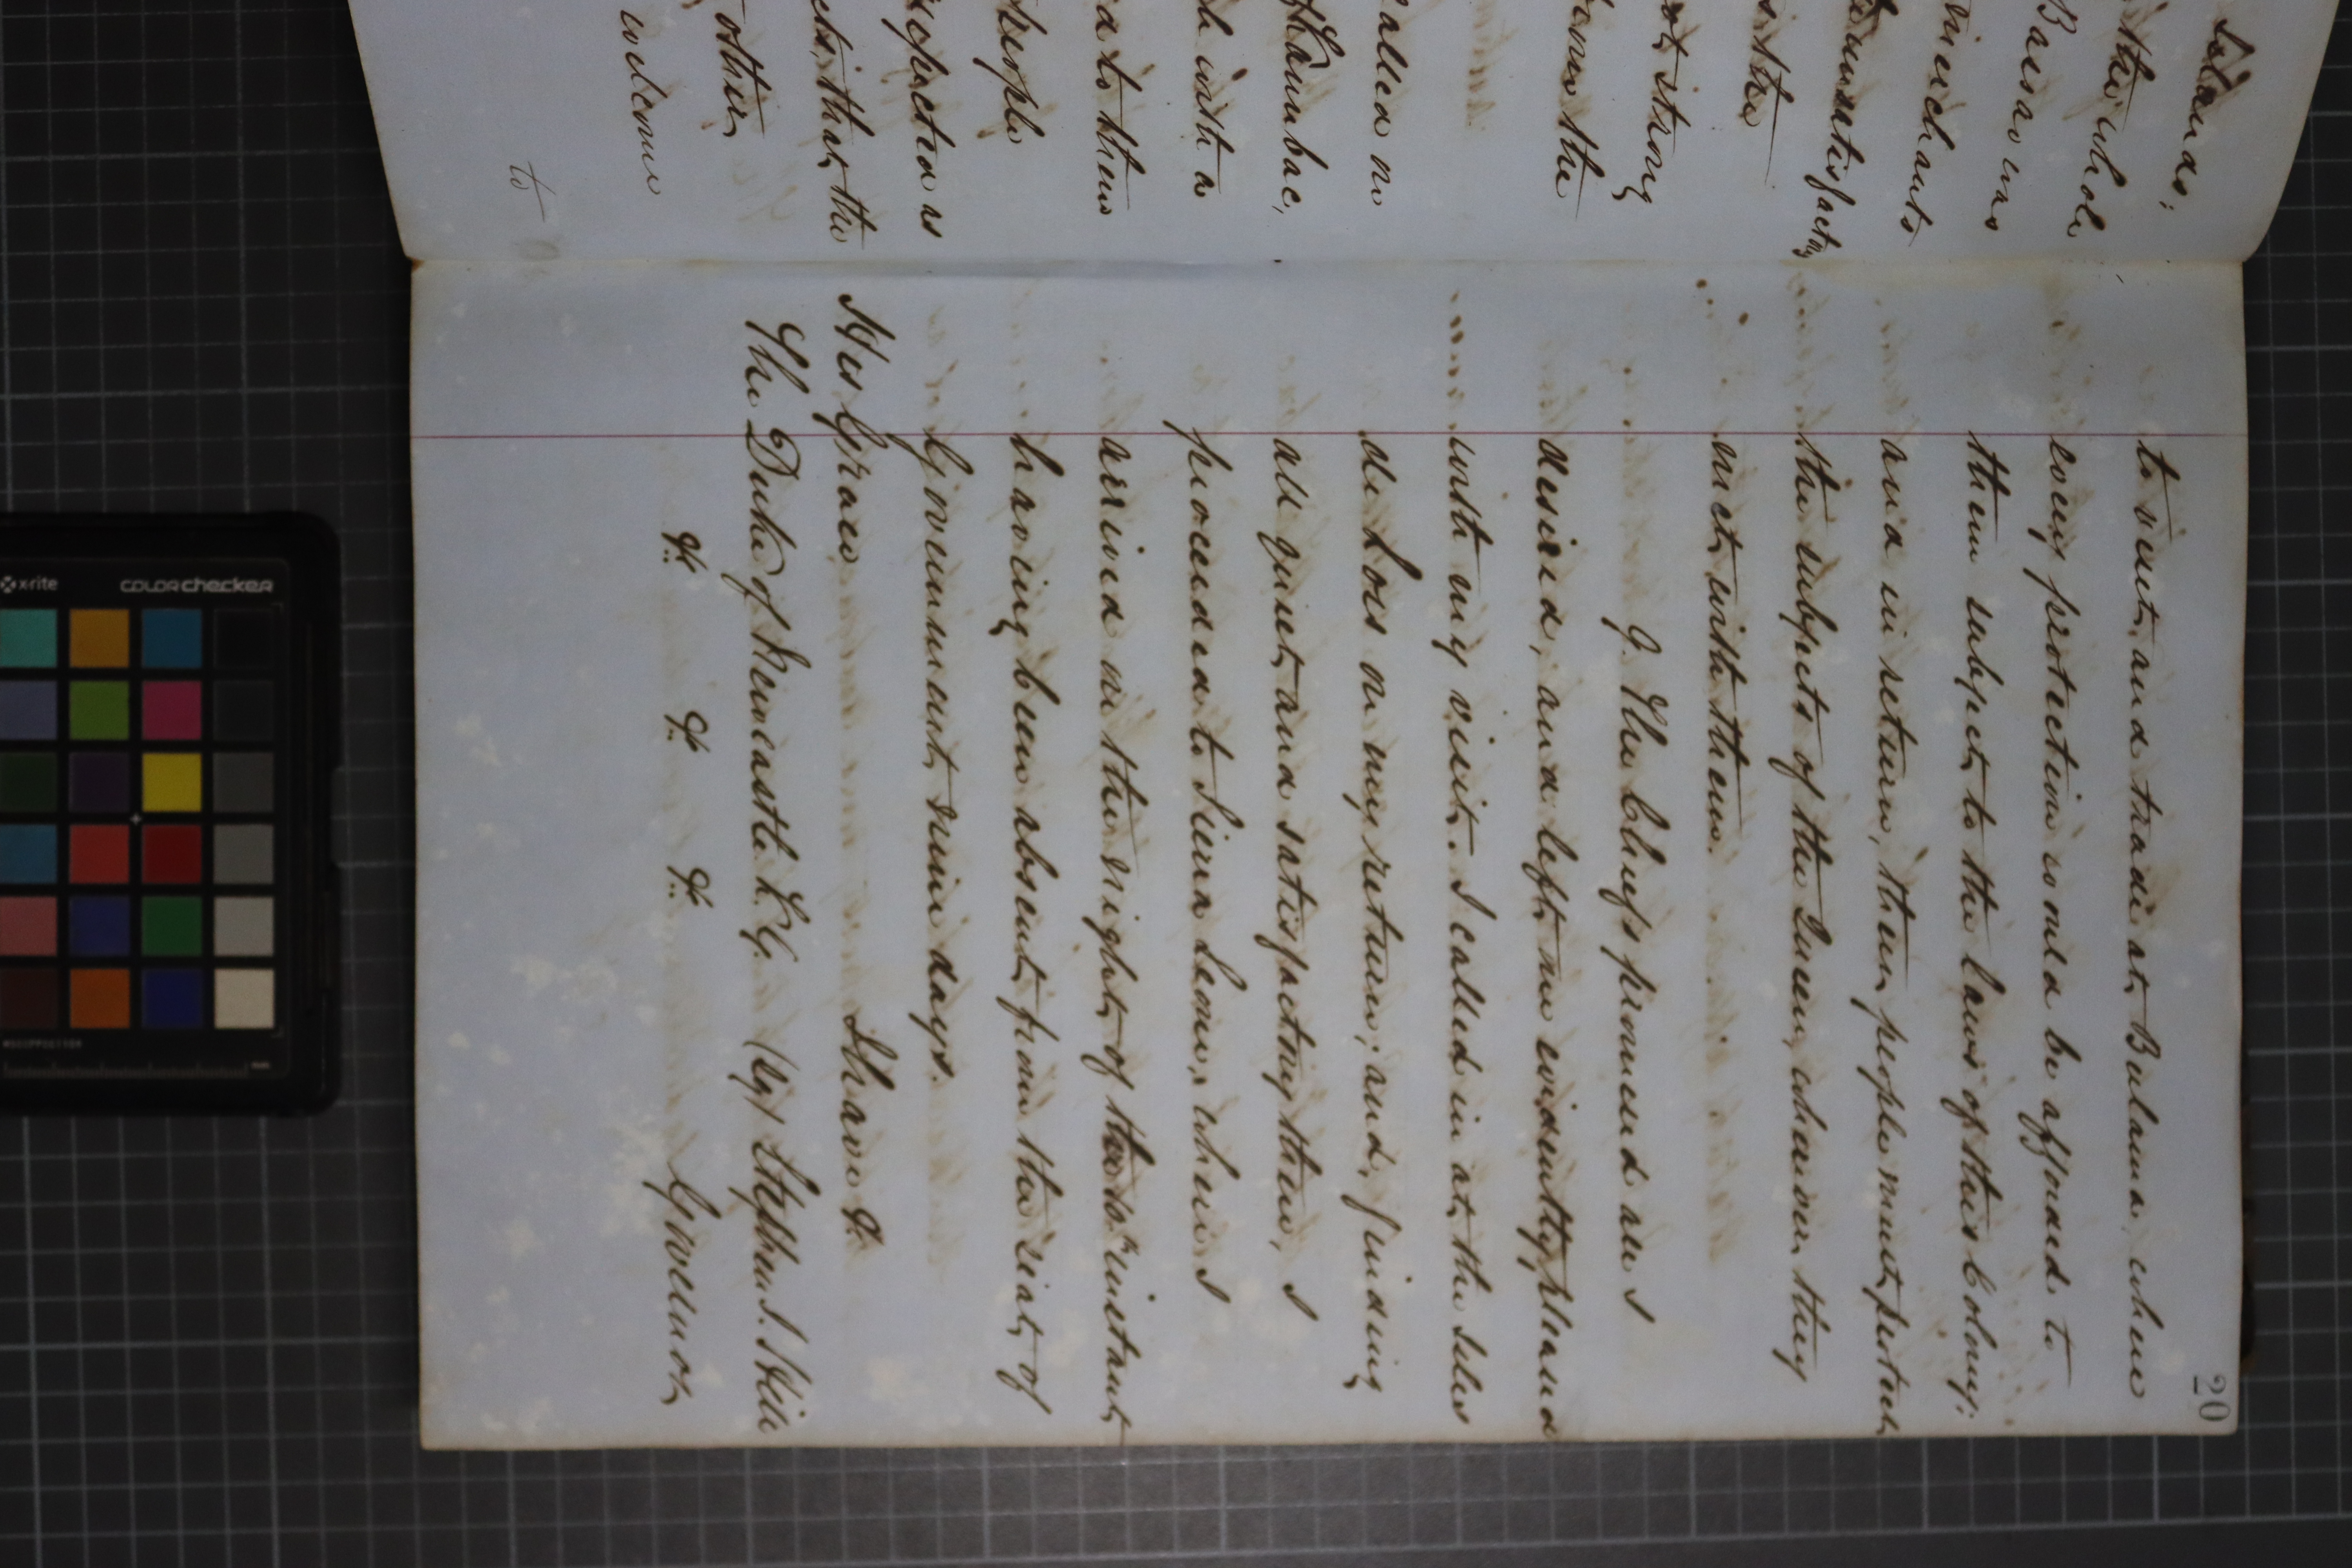 Islands;
the whole
Barso was
merchants
unsatisfactory
is the
strong
the
called on
h with a
to them
people
expected as
that the
other
welcome
to
20
to visit, and trade at Bulama, where
every protection would be afforded to
them subject to the laws of this Colony;
and in return, their people must protect
the subjects of the Queen, whenever they
met with them.
9. The Chiefs promised all I
desired, and left me evidently pleased
with my visit. I called in at the Isles
de Loss on my return; and, finding
all quiet and satisfactory there, I
proceeded to Sierra Leone, where I
arrived on the night of the 10th instant,
having been absent from the seat of
Government, nine days.
I have &c.
His Grace
The Duke of Newcastle K.G. (Sg) Stephen J. Hill
&c. &c. &c. Governor
x-rite colorchecker